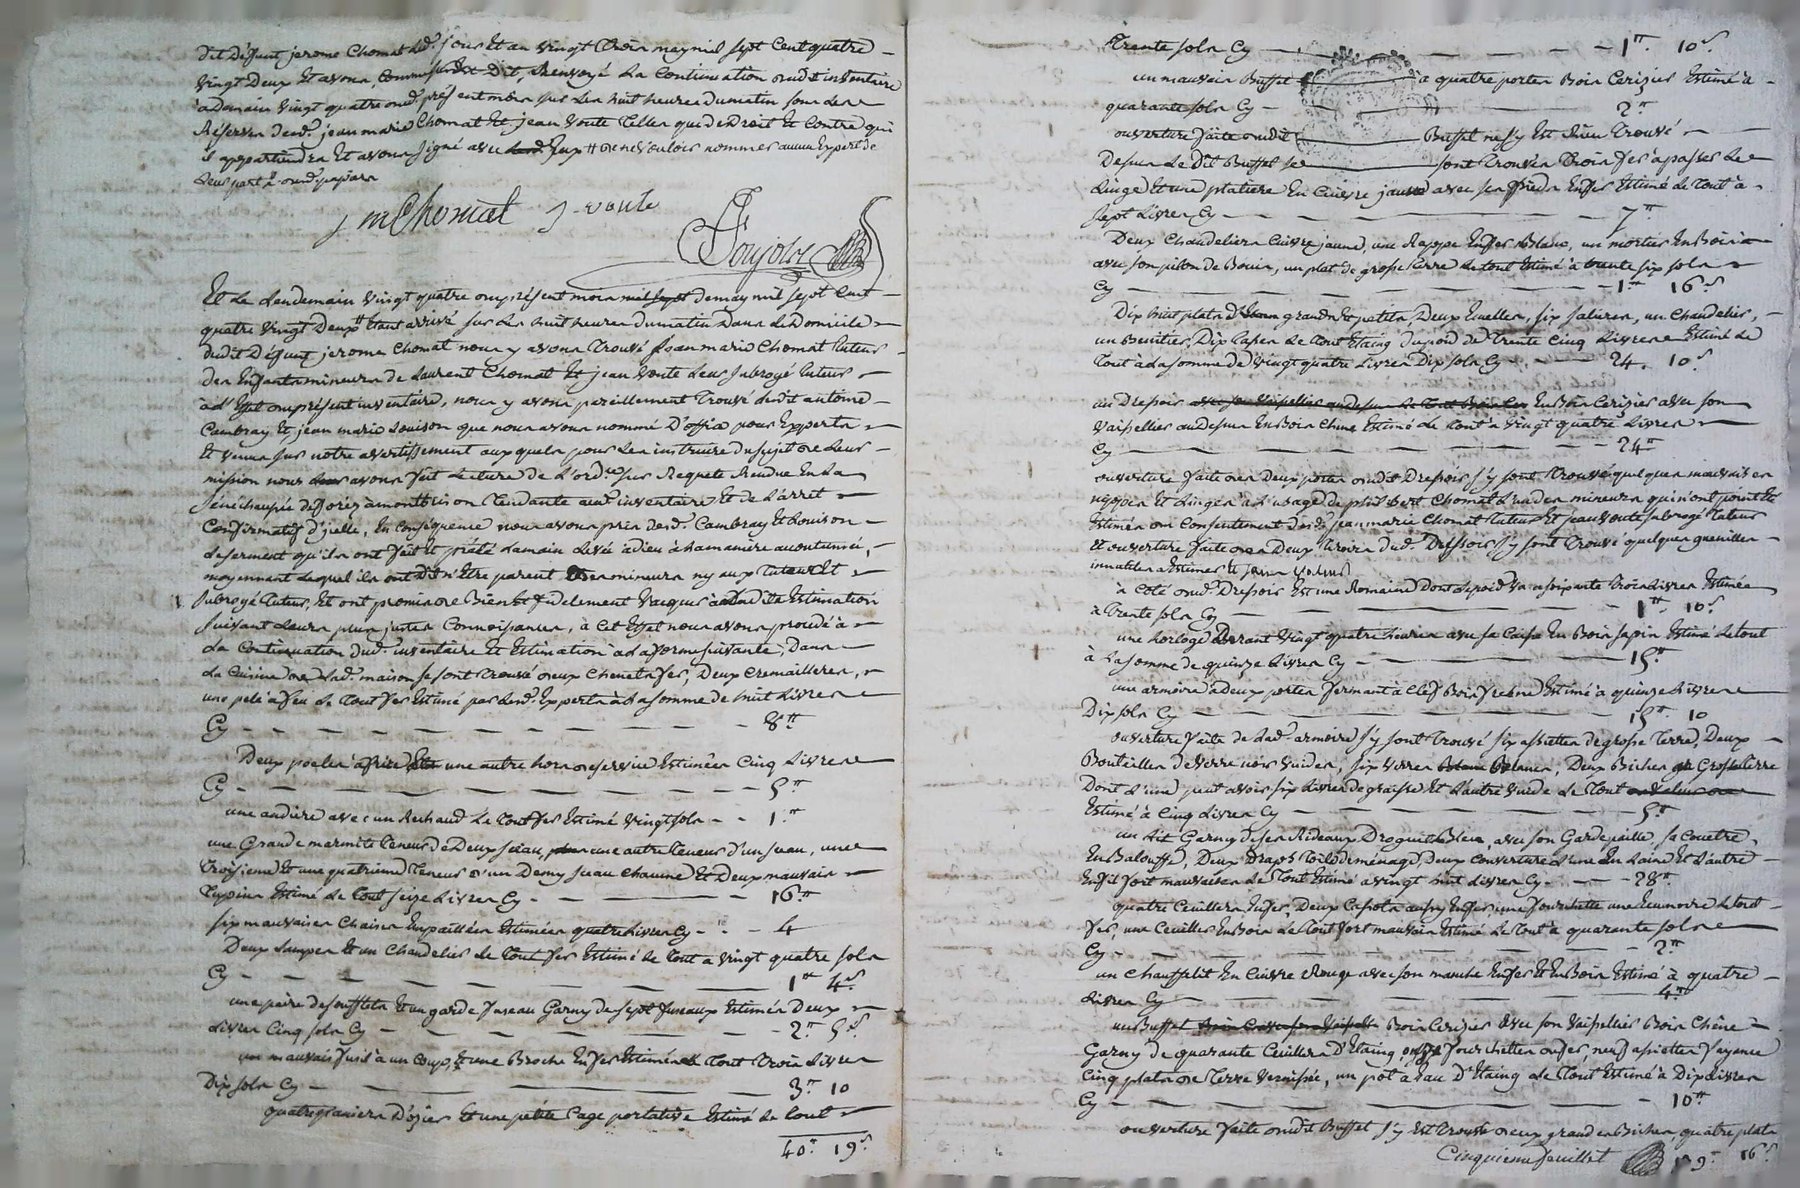 dit Deffunt jerome Chomat lesd. jour et an vingt trois may mil sept cent quatre
vingt deux et avons, Comme sus est dit, Renvoyé La Continuation dudit inventaire
à demain vingt quatre du présent mois sur les huit heures du matin sous les
Réserves desd. jean marie Chomat et jean Voute telles que de droit et Contre qui
il appartiendra et avons signé avec Eux de ne vouloir nommer aucun Expert de
leur part
j mChomat j-voute
Et Le Lendemain vingt quatre du présent mois de may mil sept Cent
quatre vingt deux étant arrivé sur les huit heures du matin dans le Domicile
dudit Défunt jerome Chomat nous y avons trouvé jean marie Chomat tuteur
des Enfants mineurs de Laurent Chomat et jean Voute leur subrogé tuteur
à l'Effet du présent inventaire, nous y avons pareillement trouvé lesdit antoine
Cambray et jean marie Louison que nous avons nommé D'office pour Experts
et venus sur notre avertissement auxquels pour les instruire du sujet de leur
mission nous avons fait Lecture de L'ord.ce sur Requete Rendue En La
sénéchaussée de forez à montbrison tendante aud. inventaire et de L'arret
Confirmatif d'jcelle, En Conséquence nous avons pris desd. Cambray et Louison
le serment qu'ils ont fait et prété la main Levée à dieu à la maniere accoutumée,
moyennant lequel ils ont Dit n'Etre parent des mineurs ny aux tuteur et
subrogé tuteur, Et ont promis de Bien et fidelement Vacquer à Ladite Estimation
suivant Leurs plus justes Connoissances, à Cet Effet nous avons procédé à
La Continuation dud. inventaire et Estimation à La forme suivante, Dans
La Cuisine de lad. maison se sont trouvé deux Chenets fer, deux Cremailleres,
une pele à feu le tout fer Estimé par lesd. Experts à La somme de huit Livres
Cy - - - 8#
Deux poeles à frire une autre hors de service Estimées Cinq Livres
Cy - - - 5#
une andiere avec un Rechaud Le tout fer Estimé vingt sols - - 1#
une Grande marmite teneur de Deux seau, une autre teneur d'un seau, une
troisieme et une quatrieme teneur d'un Demy seau Chacune et Deux mauvais
Estimé le tout seize Livres Cy - - - 16#
six mauvaises Chaises Empaillées Estimées quatre Livres Cy - - - 4
Deux Lampes et un Chandelier Le tout fer Estimé le tout a vingt quatre sols
Cy - - - 1# 4s
une paire de soufflets et un garde fuseau Garny de sept fuseaux Estimés Deux
Livres Cinq sols Cy - - - 2# 5s
un mauvais fusil à un Coup, et une Broche En fer Estimé le tout trois Livres
Dix sols Cy - - - 3# 10
quatre paniers D'ozier et une petite Cage portative Estimé le tout
40# 19s
trente sols Cy - - - 1# 10s
un mauvais Buffet à quatre portes Bois Cerizier Estimé à
quarante sols Cy - - - 2#
ouverture faite dudit Buffet ne s'y Est Rien trouvé
Dessus Le Dit Buffet se sont trouvés trois fers à passer Le
Linge et une platiere En Cuivre jaune avec ses pieds En fer Estimé le tout à
sept Livres Cy - - - 7#
Deux Chandeliers Cuivre jaune, une Rappe En fer Blanc, un mortier En Bois
avec son pilon de Bouis, un plat de grosse terre Le tout Estimé à trente six sols
Cy - - - 1# 16s
Dix huit plats d'Etain grands et petits, Deux Ecuelles, six salieres, un Chandelier,
un Benitier, Dix tasses Le tout Etaing du poid de trente Cinq Livres Estimé Le
tout à La somme de Vingt quatre Livres Dix sols Cy - - - 24. 10s
un Dressoir En Bois Cerizier avec son
Vaissellier au dessus En Bois Chene Estimé Le tout à vingt quatre Livres
Cy - - - 24#
ouverture faite des Deux portes dudit Dressoir s'y sont trouvé quelques mauvaises
nippes et Linges à L'usage de Chomat L'un des mineurs qui n'ont point été
Estimés du Consentement desd. jean marie Chomat tuteur et jean Voute subrogé tuteur
et ouverture faite des Deux tiroirs dud. Dressoir s'y sont trouvé quelques guenilles
inutiles a Estimer et sans valeur
à Coté dud. Dressoir Est une Romaine Dont le poid Va a soixante trois Livres Estimée
à trente sols Cy - - - 1# 10s
une horloge durant vingt quatre heures avec sa Caisse En Bois sapin Estimé Le tout
à La somme de quinze Livres Cy - - - 15#
une armoire à Deux portes fermant à Clef Bois fresne Estimé à quinze Livres
Dix sols Cy - - - 15# 10
ouverture faite de Lad. armoire s'y sont trouvé six assiettes de grosse terre, Deux
Bouteilles de Verre noir vuides, six verres Blancs, Deux Biches de Grosse terre
Dont L'une peut avoir six Livres de graisse et L'autre vuide Le tout
Estimé à Cinq Livres Cy - - - 5#
un Lit Garny de ses Rideaux Droguet Bleu, avec son Gardepaille, sa Couetre
En Balouffe, Deux Draps toile de ménage, Deux couvertures L'une En Laine et L'autre
En fil fort mauvaises Le tout Estimé a vingt huit Livres Cy - - - 28#
quatre Ceuilleres En fer, Deux En fer, une fourchette une Ecumoire Le tout
fer, une Ceuillere En Bois Le tout fort mauvais Estimé Le tout à quarante sols
Cy - - - 2#
un Chauffelit En Cuivre Rouge avec son manche En fer et En Bois Estimé à quatre
Livres Cy - - - 4#
un Buffet Bois Cerizier avec son Vaissellier Bois Chêne
Garny de quarante Ceuilleres D'Etaing, onze fourchettes de fer, neuf assiettes fayance
Cinq plats de terre Vernissée, un pot à Eau D'Etaing Le tout Estimé à Dix Livres
Cy - - - 10#
ouverture faite dudit Buffet s'y Est trouvé deux grandes Biches, quatre plats
Cinquieme feuillet 16s